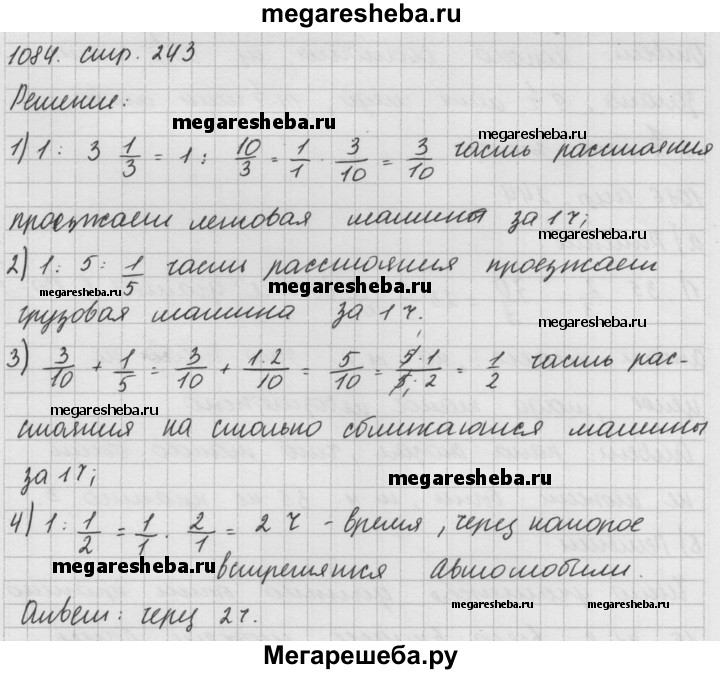 megaresheba.ru
1084. стр. 243
Решение:
megaresheba.ru
megaresheba.ru
1) 1 : 3 1/3 = 1 : 10/3 = 1/1 · 3/10 = 3/10 часть расстояния
проезжает легковая машина за 1 ч;
megaresheba.ru
2) 1 : 5 = 1/5 часть расстояния проезжает
megaresheba.ru
megaresheba.ru
грузовая машина за 1 ч.
megaresheba.ru
3) 3/10 + 1/5 = 3/10 + 1·2/10 = 5/10 = 5·1/5·2 = 1/2 часть рас-
megaresheba.ru
стояния на столько сближаются машины
за 1 ч;
megaresheba.ru
4) 1 : 1/2 = 1/1 · 2/1 = 2 ч - время, через которое
megaresheba.ru
встретятся автомобили.
Ответ: через 2 ч.
megaresheba.ru
megaresheba.ru
Мегарешеба.ру